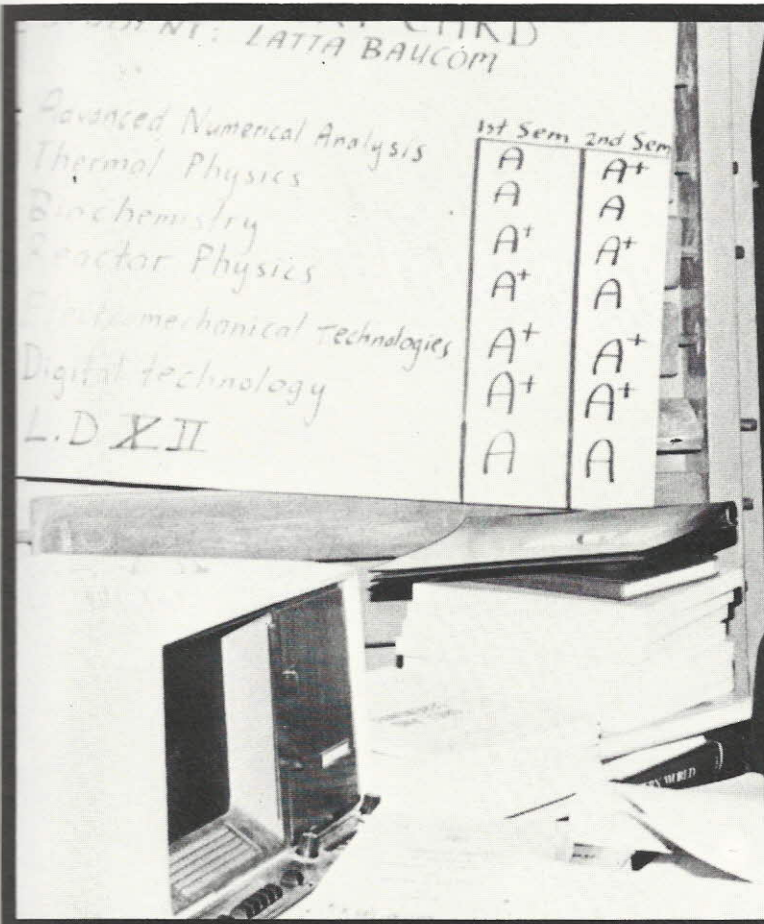 CARD
LATTA BAUCOM
1st Sem 2nd Sem
Advanced Numerical Analysis A A+
Thermal Physics A A
Biochemistry A+ A+
Reactor Physics A+ A
Electromechanical Technologies A+ A+
Digital technology A+ A+
L.D XII A A